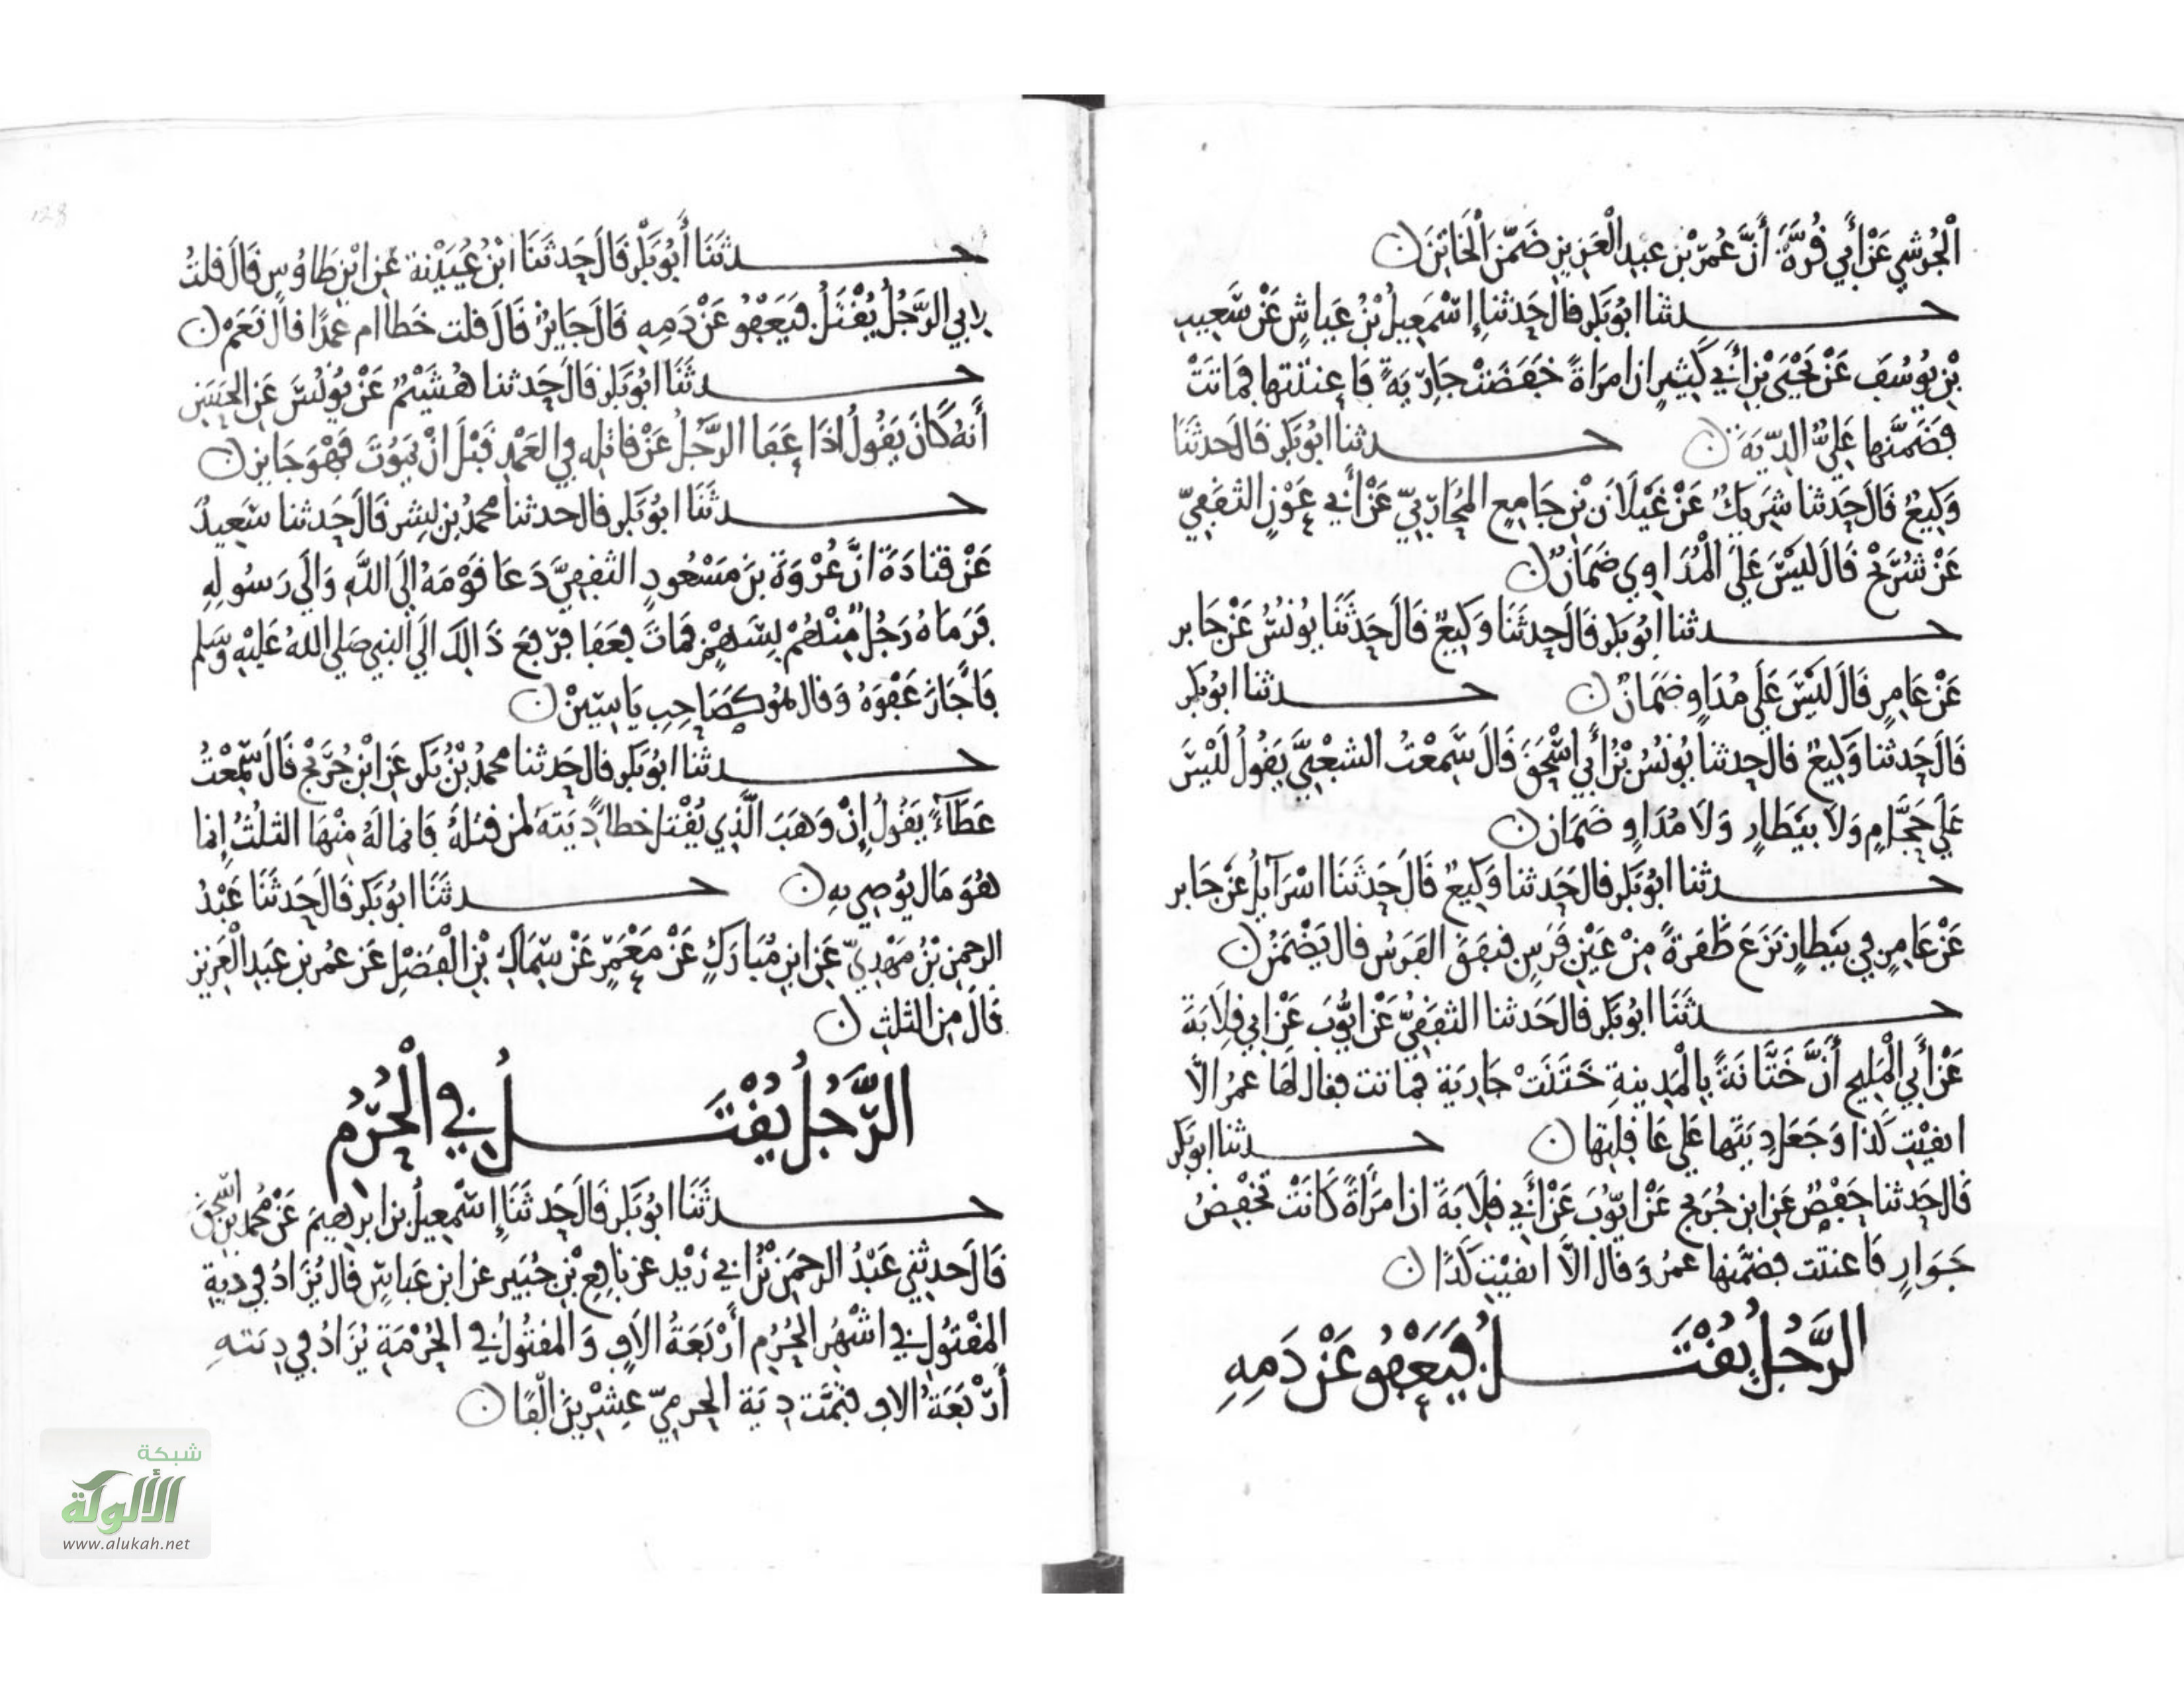 الْجُرَشِي عَنْ أَبِي قُرَّةَ أَنَّ عُمَرَ بْنَ عبد الْعَزِيزِ ضَمَّنَ الْخَاتِنَ
حدثنا ابُو بَكر قال حَدثنا إِسْمَعِيلُ بْنُ عَيَاشٍ عَنْ شَعِيبِ
بْنِ يُوسُفَ عَنْ يَحْيَى بْنِ أَبِي كَثِيرٍ ان امرَاةً خَفَضَتْ جَارِيَةً فَاعنتتها فمَاتَتْ
فضَمَّنها عَلِيٌّ الدِّيَةَ حدثنا ابُو بَكر قَالَ حَدثَنَا
وَكِيعٌ قَالَ حَدثنا شَرِيكٌ عَنْ غَيْلَانَ بْنِ جَامِعٍ المُحَارِبِيّ عَنْ أَبِي عَوْنٍ الثقَفِيّ
عَنْ شُرَيْح قَالَ لَيْسَ عَلَى الْمُدَاوِي ضَمَانٌ
حدثنا ابُو بَكر قَالَ حَدثَنَا وَكِيعٌ قَالَ حَدثَنَا يُونُسُ عَنْ جَابر
عَنْ عَامِرٍ قَالَ لَيْسَ عَلَى مُدَاوٍ ضَمَانٌ حدثنا ابُو بَكر
قَالَ حَدثنا وَكِيعٌ قال حَدثنا يُونُسُ بْنُ أَبِي اسْحَقَ قَالَ سَمِعْتُ الشعْبِيَّ يَقُولُ لَيْسَ
عَلَى حَجَّامٍ وَلَا بَيَطَارٍ وَلَا مُدَاوٍ ضَمَان
حدثنا ابُو بَكر قال حَدثنا وَكِيعٌ قَالَ حَدثَنَا اسْرَآيلُ عَنْ جَابر
عَنْ عَامِرٍ في بَيَطارٍ نَزَعَ ظَفَرةً مِنْ عَيْنِ فَرَسٍ فنفَقَ الفَرَسُ قال يَضْمَنُ
حدثَنَا ابُو بَكر قال حَدثنا الثقَفِيُّ عَنْ ايُّوبَ عَنْ ابي قِلَابَةَ
عَنْ أَبِي الْمَلِيحِ أَنَّ خَتَّانَةً بِالْمَدِينةِ خَتَنَتْ جَارِيَة فماتت فقال لَهَا عمرُ الَّا
ابقيْتِ كَذَا وَجَعَل دِيَتَها عَلَى عَاقِلتها حدثنا ابو بَكر
قال حَدثنا حَفْصٌ عَنِ ابن جُرَيج عَنْ ايّوُبَ عَنْ أَبِي قِلَابَةَ ان امرَأةً كَانَتْ تَخْفِضُ
جَوَارٍ فَاعنتت فضمَّنها عمرُ وَقال الَّا ابقيْتِ كَذَا
الرَّجُلُ يُقْتَلُ فَيَعْفُو عَنْ دَمِهِ
حدثَنَا أَبُو بَكْر قَالَ حَدثَنَا ابْنُ عُيَيْنة عَنِ ابْنِ طَاوُسٍ قَالَ قلتُ
لِابي الرَّجُلُ يُقْتَلُ فيَعْفُو عَنْ دَمِهِ قَالَ جَايزٌ قَالَ قلت خَطا ام عمدًا قال نَعَمْ
حدثَنَا ابُو بَكر قَالَ حَدثنا هُشَيْمٌ عَنْ يُونُسَ عَنِ الحَسَنِ
أَنهُ كَانَ يَقُولُ اذَا عَفَا الرجُلُ عَنْ قاتِلِهِ فِي العَمْدِ قَبْلَ انْ يَمُوتَ فَهْوَ جَايز
حدثَنَا ابُو بَكر قال حدثنا محمدُ بن بِشر قَالَ حَدثنا سَعِيدُ
عَنْ قتادَةَ انَّ عُرْوَةَ بنَ مَسْعُودٍ الثقفِيَّ دَعَا قَوْمَهُ إِلَى اللَّهِ وَالَى رَسُولِهِ
فَرَمَاهُ رَجُلٌ مِنْهُمْ بِسَهْمٍ فمَاتَ فعَفَا فرُفِعَ ذَالِكَ الَى النبي صَلى اللهُ عَلَيْهِ وَسَلم
فَأَجَازَ عَفْوَهُ وَقال هُوَ كَصَاحِبِ يَاسِينْ
حدثنا ابُو بَكر قال حَدثنا محمدُ بْنُ بَكر عَنِ ابْنِ جُرَيْج قَالَ سَمِعْتُ
عَطَآءً يَقُولُ إِنْ وَهَبَ الَّذِي يُقْتل خطاً دِيَتَهُ لمن قتلهُ فَانما لَهُ مِنْهَا الثلثُ إنما
هُوَ مَال يُوصِي بِهِ حدثَنَا ابُو بَكر قَالَ حَدثَنَا عَبْدُ
الرحمن بْنُ مَهْدِيّ عَنِ ابنِ مُبَارَكٍ عَنْ مَعْمَرٍ عَنْ سِمَاكِ بْنِ الْفَضْلِ عَن عمر بن عَبد الْعَزِيز
قَالَ مِنَ الثلثِ
الرَّجُلُ يُقْتَلُ فِي الْحُرُمِ
حدثَنَا ابُو بَكر قَالَ حَدثَنَا إِسْمعِيلُ بن ابرهِيمَ عَنْ مُحمد بن اسْحَقَ
قَالَ حدثني عَبْدُ الرحمَنِ بْنُ ابي زَيْد عن نافِعِ بْنِ جُبَير عن ابن عَباسٍ قال يُزَادُ في دية
المقْتُولِ في اشْهُرِ الحُرُمِ أَرْبَعَةُ الَافٍ وَالمقتُولُ فِي الحُرْمَةِ يُزَادُ في دِيَتهِ
أَرْبَعَةُ الاف فتمَّت دِيَة الحرمِيّ عِشْرِينَ الْفًا
شبكة
الألوكة
www.alukah.net